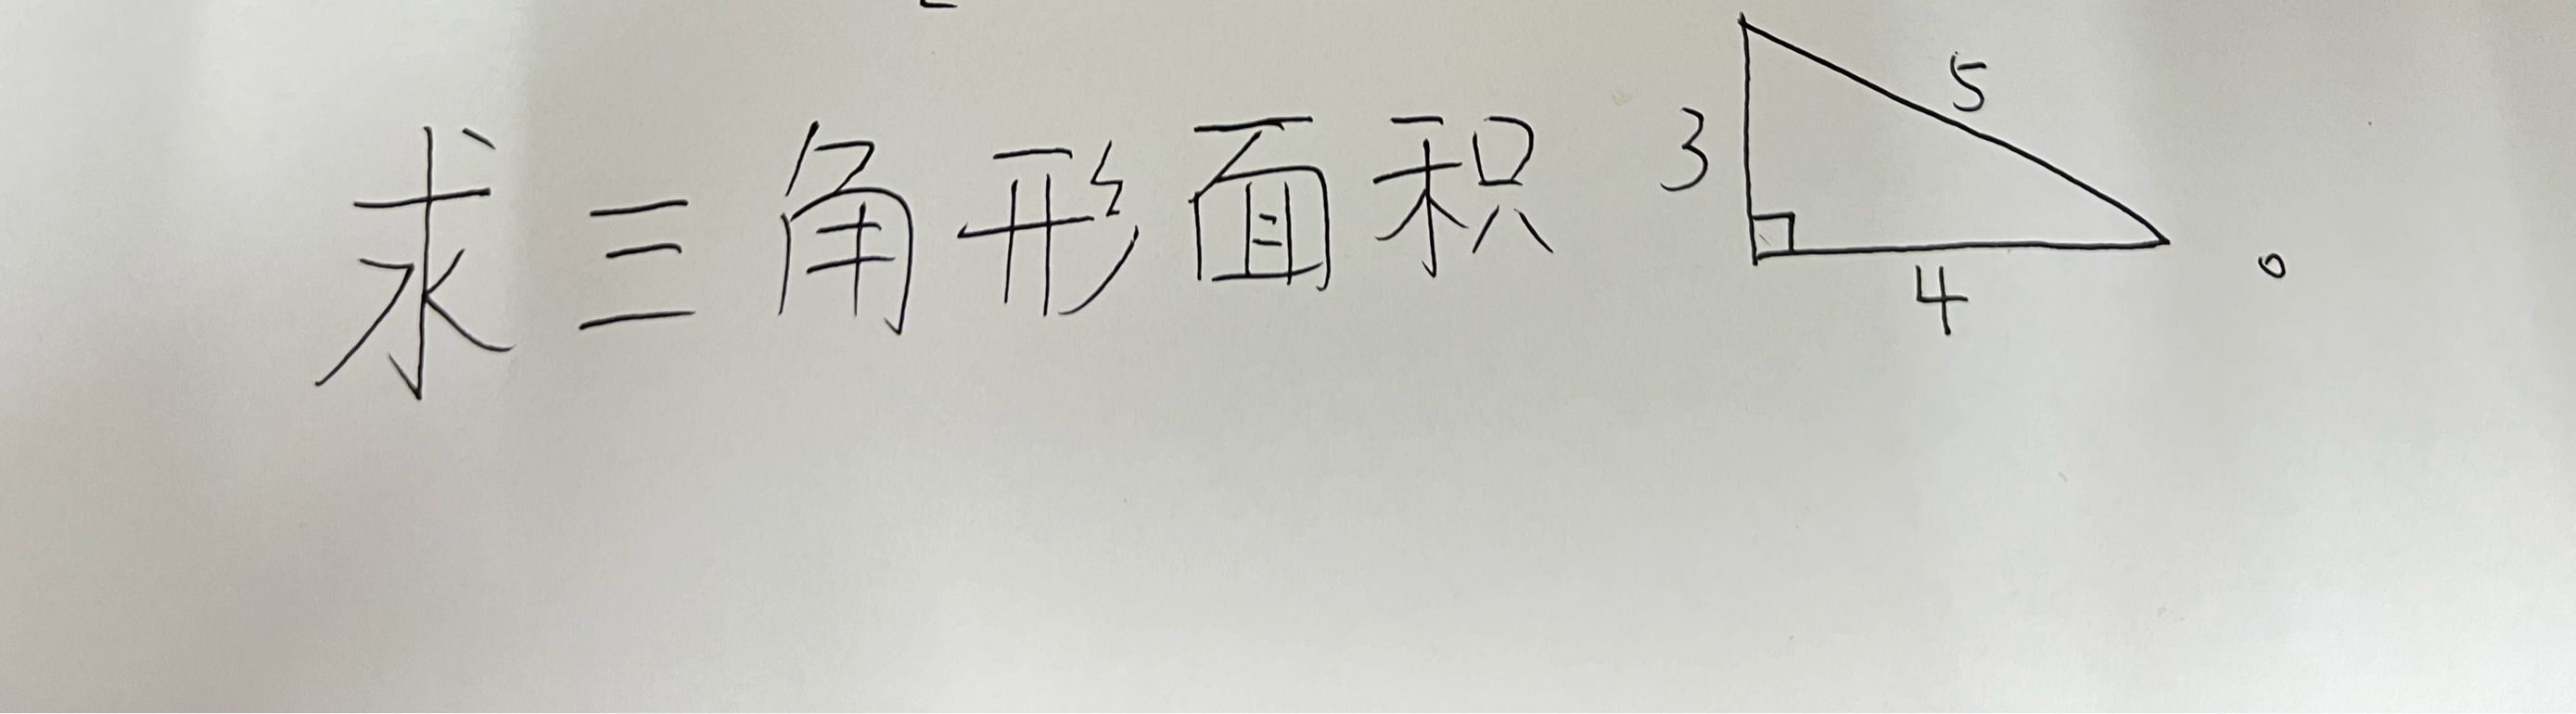 求三角形面积 3 5 4 。